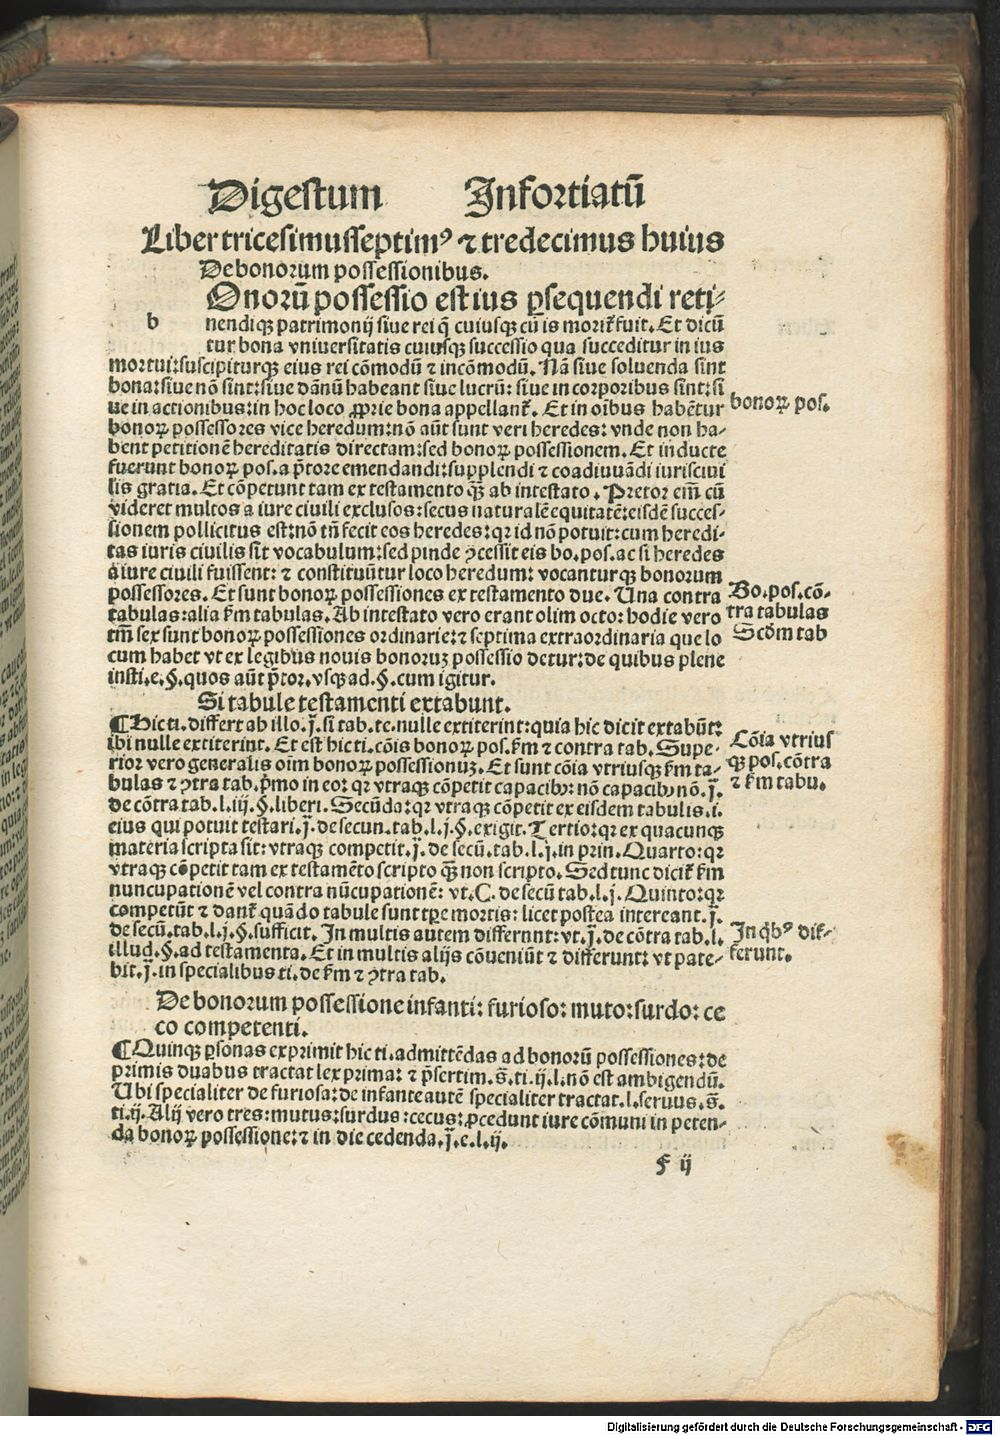 Digestum Infortiatū
Liber tricesimusseptimꝰ ⁊ tredecimus huius
De bonorum possessionibus.
Onorū possessio est ius ꝑsequendi reti-
b nendiqꝫ patrimonij siue rei q̄ cuiusqꝫ cū is morit̉ fuit. Et dicū
tur bona vniuersitatis cuiusqꝫ successio qua succeditur in ius
mortui: suscipiturqꝫ eius rei cōmodū ⁊ incōmodū. Nā siue soluenda sint
bona: siue nō sint: siue dānū habeant siue lucrū: siue in corporibus sint: si
ue in actionibus: in hoc loco ꝓprie bona appellant̉. Et in oībus habētur
bonoꝝ possessores vice heredum: nō aūt sunt veri heredes: vnde non ha-
bent petitionē hereditatis directam: sed bonoꝝ possessionem. Et inducte
fuerunt bonoꝝ pos. a p̄tore emendandi: supplendi ⁊ coadiuuādi iurisciui
lis gratia. Et cōpetunt tam ex testamento qꝫ̄ ab intestato. Pretor eīm cū
videret multos a iure ciuili exclusos: secus naturalē equitatē: eisdē succes-
sionem pollicitus est: nō tn̄ fecit eos heredes: qꝛ id nō potuit: cum heredi-
tas iuris ciuilis sit vocabulum: sed pinde ꝯcessit eis bo. pos. ac si heredes
a iure ciuili fuissent: ⁊ constituūtur loco heredum: vocanturqꝫ bonorum
possessores. Et sunt bonoꝝ possessiones ex testamento due. Una contra
tabulas: alia ẜm tabulas. Ab intestato vero erant olim octo: hodie vero
tm̄ sex sunt bonoꝝ possessiones ordinarie: ⁊ septima extraordinaria que lo
cum habet vt ex legibus nouis bonoruꝫ possessio detur: de quibus plene
insti. e. §. quos aūt p̄tor. vsqꝫ ad. §. cum igitur.
Si tabule testamenti extabunt.
¶ Hic ti. differt ab illo. j̄. si tab. te. nulle extiterint: quia hic dicit extabūt:
ibi nulle extiterint. Et est hic ti. cōis bonoꝝ pos. ẜm ⁊ contra tab. Supe-
rior vero generalis oīm bonoꝝ possessionuꝫ. Et sunt cōia vtriusqꝫ ẜm ta-
bulas ⁊ ꝯtra tab. p̄mo in eo: qꝛ vtraqꝫ cōpetit capacibꝫ: nō capacibꝫ nō. j̄.
de cōtra tab. l. iij. §. liberi. Secūda: qꝛ vtraqꝫ cōpetit ex eisdem tabulis. i.
eius qui potuit testari. j̄. de secun. tab. l. j. §. exigit. Tertio: qꝛ ex quacunqꝫ
materia scripta sit: vtraqꝫ competit. j̄. de secū. tab. l. j. in prin. Quarto: qꝛ
vtraqꝫ cōpetit tam ex testamēto scripto qꝫ̄ non scripto. Sed tunc dicit̉ ẜm
nuncupationē vel contra nūcupationē: vt. C. de secū tab. l. j. Quinto: qꝛ
competūt ⁊ dant̉ quādo tabule sunt tp̄e mortis: licet postea intereant. j̄.
de secū. tab. l. j. §. sufficit. In multis autem differunt: vt. j̄. de cōtra tab. l.
illud. §. ad testamenta. Et in multis alijs cōueniūt ⁊ differunt: vt pate-
bit. j̄. in specialibus ti. de ẜm ⁊ ꝯtra tab.
De bonorum possessione infanti: furioso: muto: surdo: ce
co competenti.
¶ Quinqꝫ ꝑsonas exprimit hic ti. admittēdas ad bonorū possessiones: de
primis duabus tractat lex prima: ⁊ p̄sertim. s̄. ti. ij. l. nō est ambigendū.
Ubi specialiter de furiosa: de infante autē specialiter tractat. l. seruus. s̄.
ti. ij. Alij vero tres: mutus: surdus: cecus: ꝓcedunt iure cōmuni in peten-
da bonoꝝ possessione: ⁊ in die cedenda. j̄. e. l. ij.
f ij
bonoꝝ pos.
Bo. pos. cō-
tra tabulas
Scd̄m tab
Cōia vtrius
qꝫ pos. cōtra
⁊ ẜm tabu.
In qͥbꝰ dif-
ferunt.
Digitalisierung gefördert durch die Deutsche Forschungsgemeinschaft - DFG